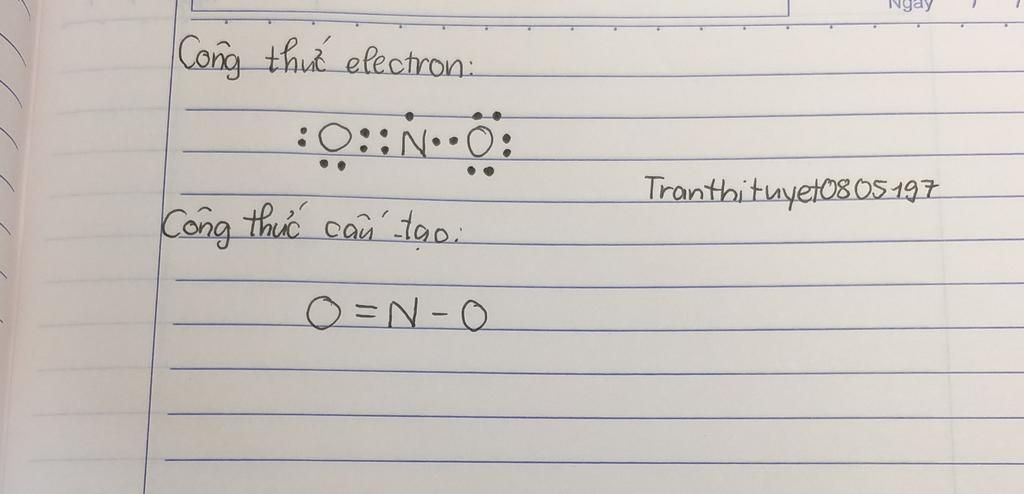 Ngày / /
Công thức electron:
:O::N··O:
Tranthituyet0805197
Công thức cấu tạo:
O=N-O